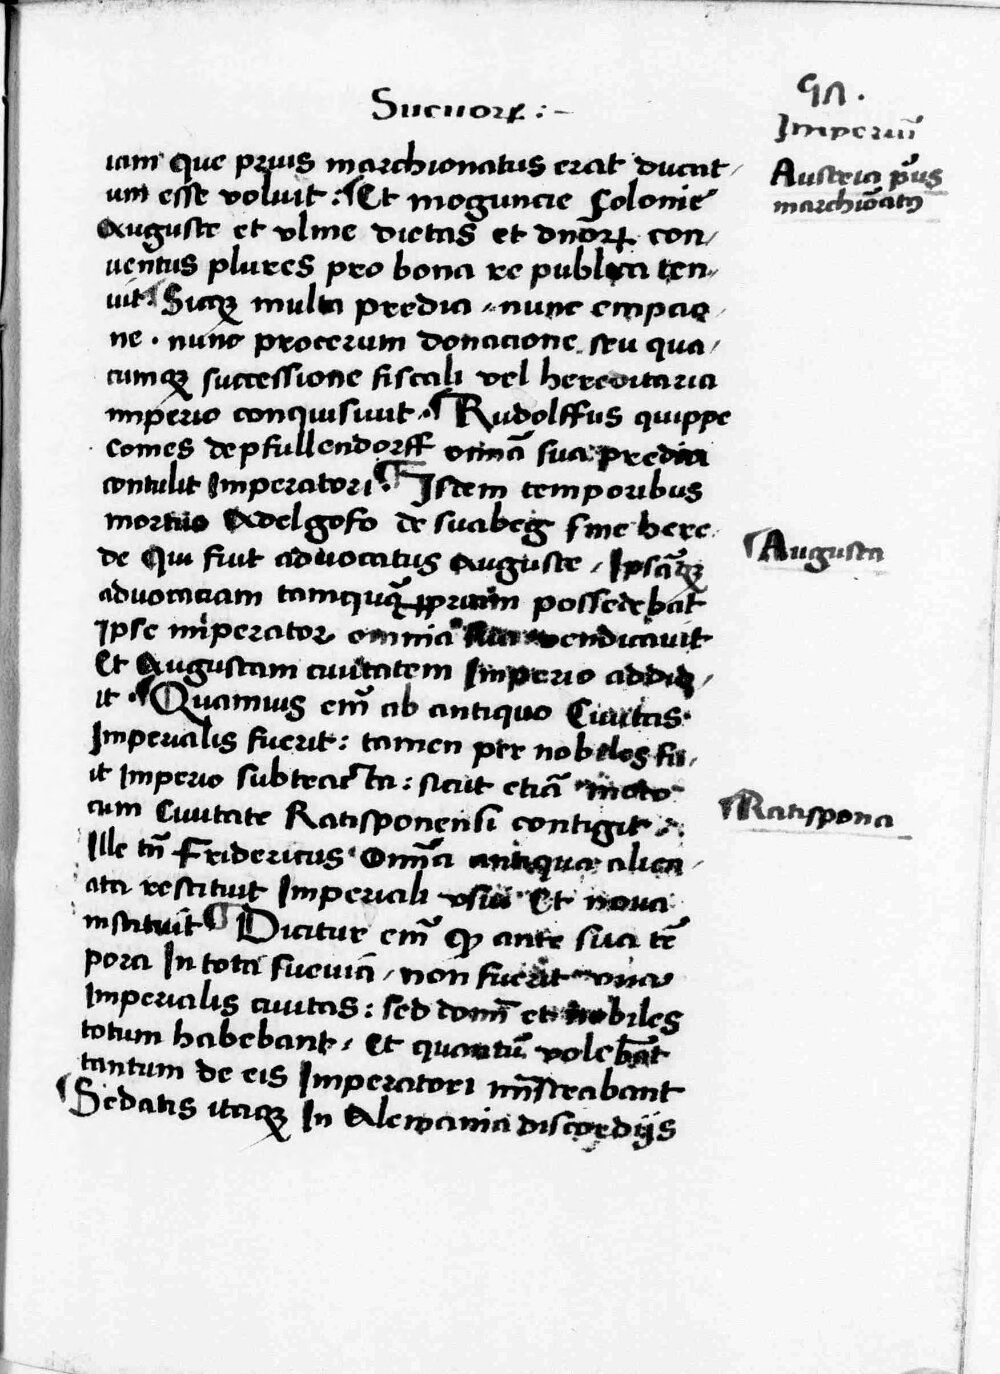 Sueuoꝝ :-
97.
Imperiū
iam que prius marchionatus erat ducat-
Austria p̄us
um esse voluit : Et moguncie Colonie
marchiōatꝯ
Auguste et vlme dietas et dnoꝝ con-
uentus plures pro bona re publica ten-
uit. Sicqꝫ multa predia - nunc empcio-
ne . nunc procerum donacione seu qua-
cumqꝫ successione fiscali vel hereditaria
imperio conquisiuit . Rudolffus quippe
comes de pfullendorff omnia sua predia
contulit Imperatori . Isdem temporibus
mortuo Adelgoso de suabeg sine here
de Qui fuit aduocatus Auguste . Ipsāqꝫ
Augusta
aduocaciam tamquā ꝓpriam possedebat
Ipse imperator omnia sua vendicauit
Et Augustam ciuitatem Imperio addid-
it . Quamuis em̄ ab antiquo Ciuitas
Imperialis fuerit : tamen per nobiles fu-
it imperio subtracta : sicut etiā modo
cum Ciuitate Ratisponensi contigit .
Ratispona
Ille tn̄ Fridericus Omīa antiqua alien-
ata restituit Imperiali vsui Et noua
instituit Dicitur em̄ qꝫ ante sua tē
pora In tota sueuia - non fuerit vna
Imperialis ciuitas : sed domī et nobiles
totum habebant - Et quantū volebāt
tantum de eis Imperatori mīstrabant
Sedatis itaqꝫ In Alemania discordijs